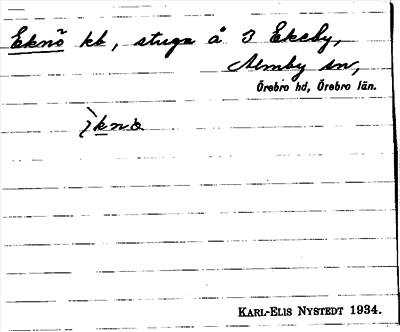 Eknö kb, stuga å 3 Ekeby,
Almby sn,
Örebro hd, Örebro län.
KARL-ELIS NYSTEDT 1934.